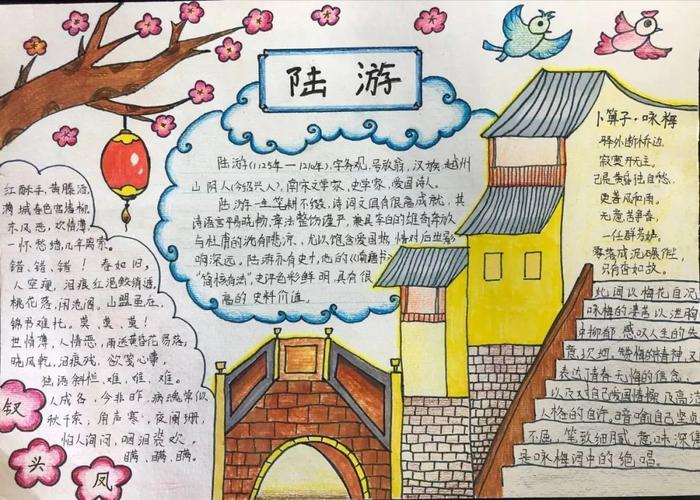 陆 游
陆游(1125年—1210年),字务观,号放翁,汉族,越州
山阴人(今绍兴人),南宋文学家,史学家,爱国诗人。
陆游一生笔耕不辍,诗词文具有很高成就,其
诗语言平易晓畅,章法整饬谨严,兼具李白的雄奇奔放
与杜甫的沈郁悲凉,尤以饱含爱国热情对后世影
响深远,陆游亦有史才,他的《南唐书》
"简核有法",史评色彩鲜明,具有很
高的史料价值。
红酥手,黄縢酒,
满城春色宫墙柳,
东风恶,欢情薄,
一怀愁绪,几年离索。
错、错、错! 春如旧,
人空瘦,泪痕红浥鲛绡透,
桃花落,闲池阁,山盟虽在,
锦书难托。莫、莫、莫!
世情薄,人情恶,雨送黄昏花易落,
晓风乾,泪痕残,欲笺心事,
独语斜栏,难,难,难。
人成各,今非昨,病魂常似
秋千索,角声寒,夜阑珊,
怕人询问,咽泪装欢,
瞒、瞒、瞒。
钗
头
凤
卜算子·咏梅
驿外断桥边,
寂寞开无主。
已是黄昏独自愁,
更著风和雨。
无意苦争春,
一任群芳妒。
零落成泥碾作尘,
只有香如故。
此词以梅花自况
咏梅的凄苦以泄胸
中抑郁,感叹人生的失
意坎坷,赞梅的精神又
表达青春无悔的信念
以及对自己爱国情操及高洁
人格的自许,暗喻自己坚贞
不屈,笔致细腻,意味深隽
是咏梅词中的绝唱。